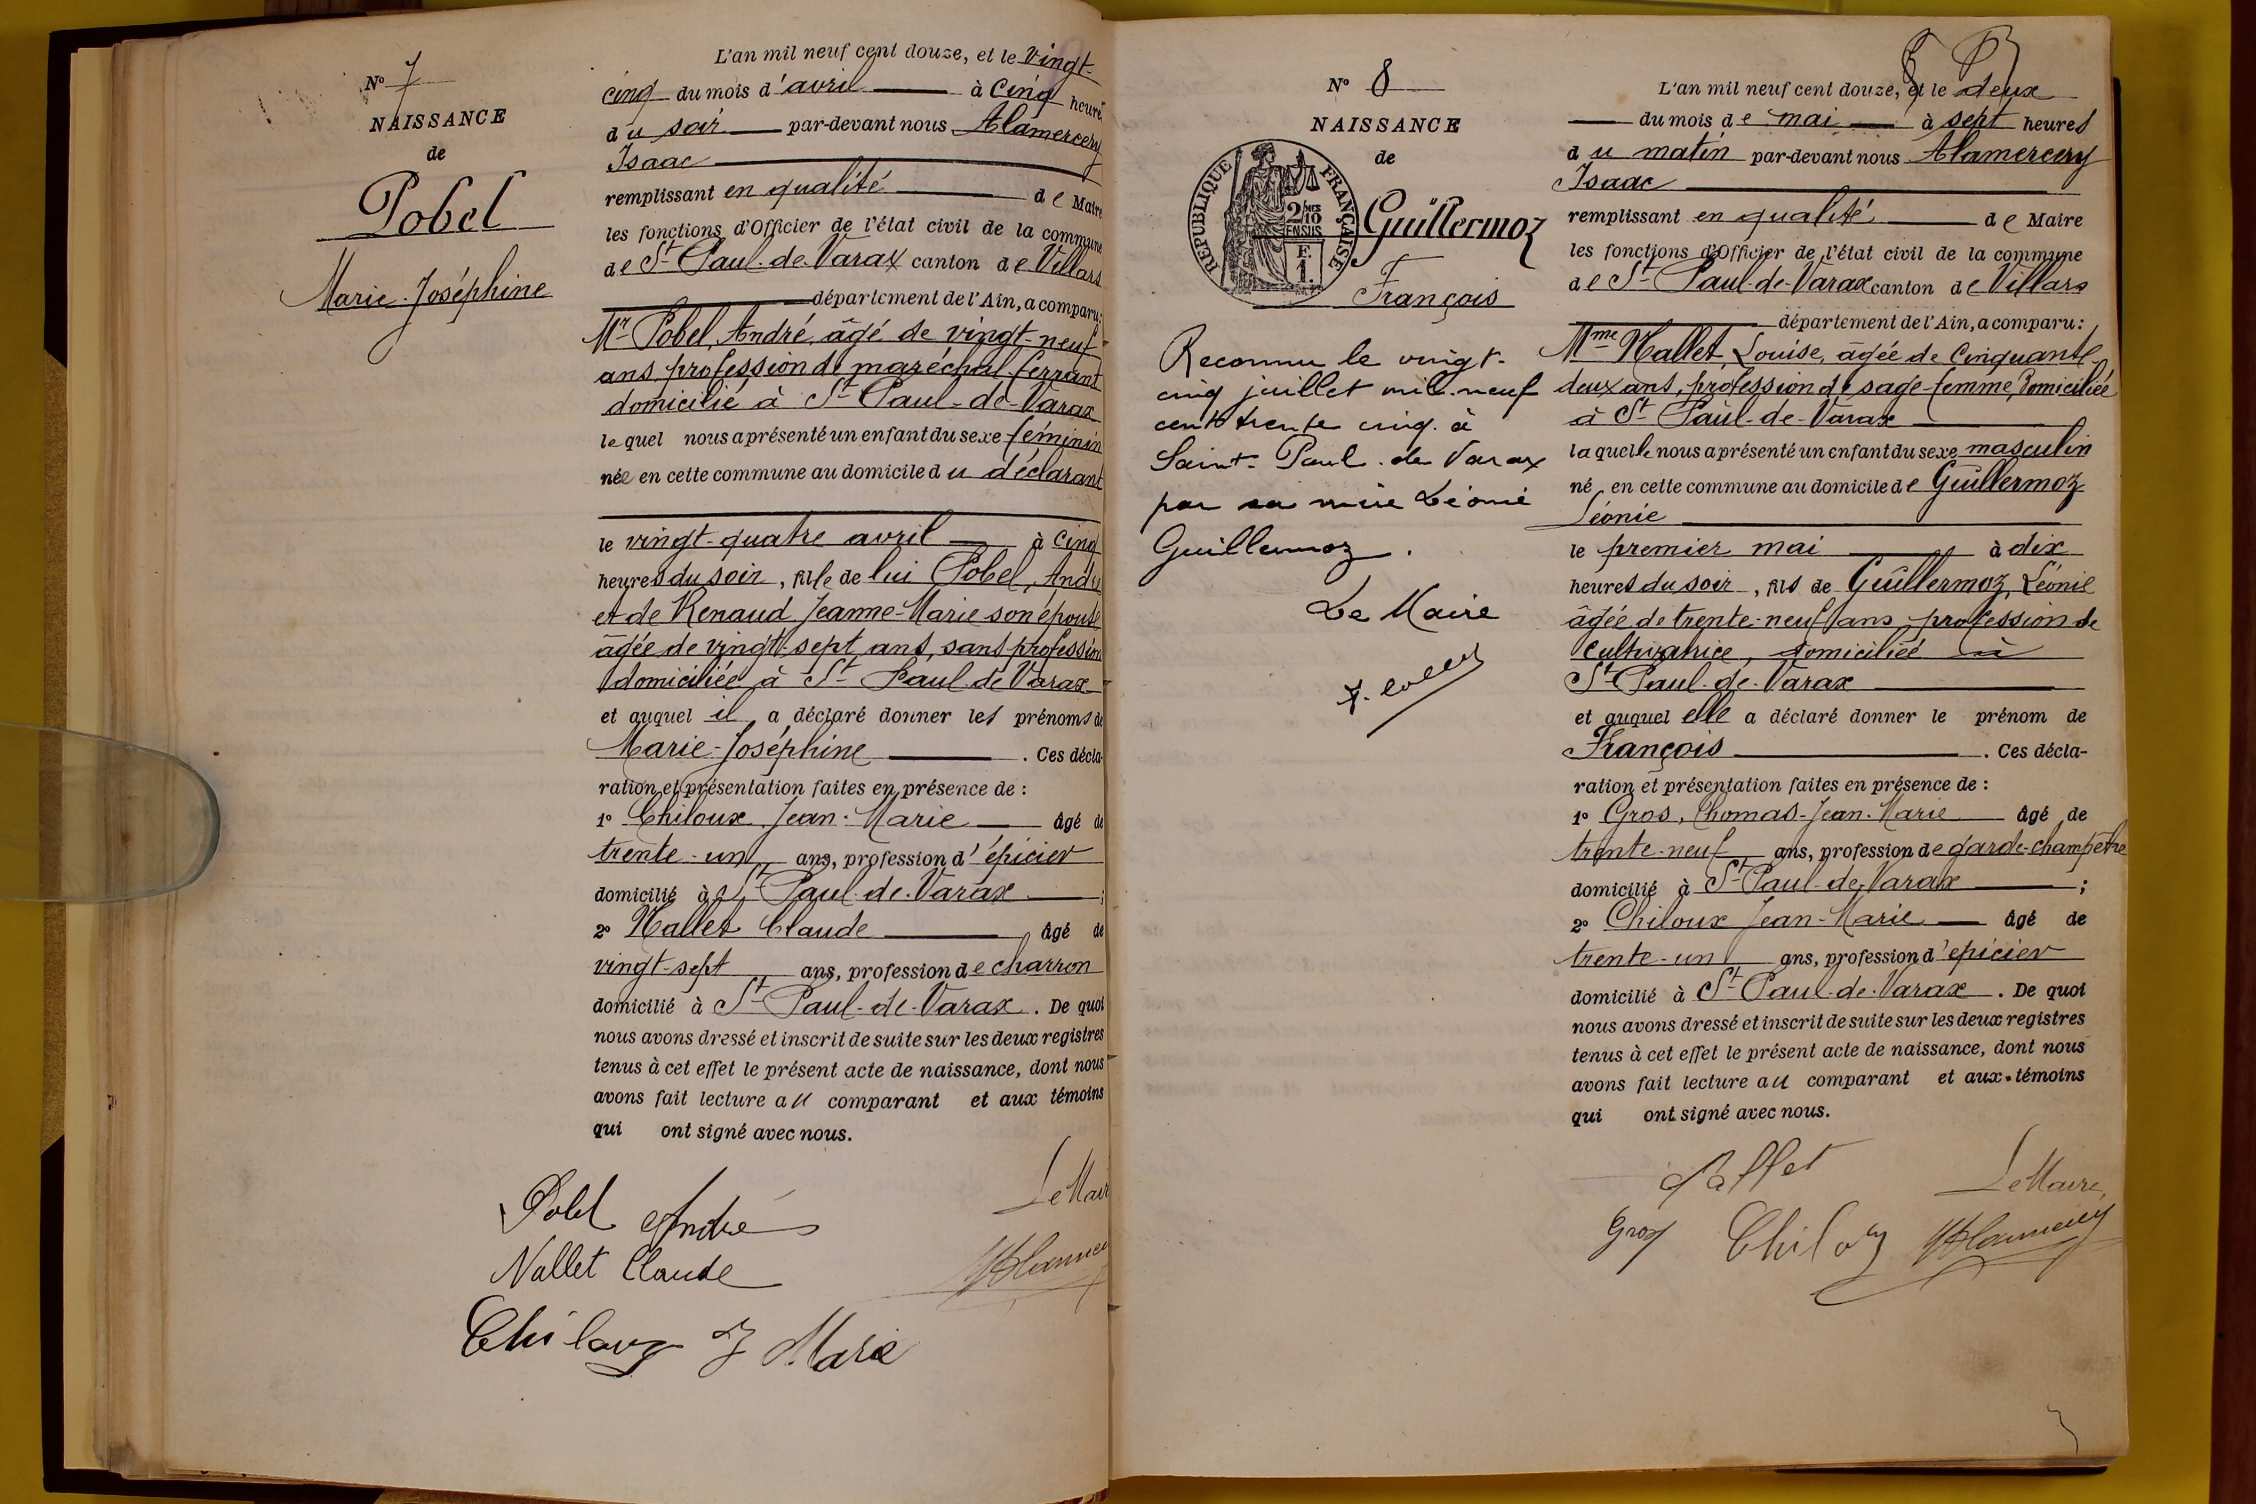 Nº 7
NAISSANCE
de
Pobel
Marie-Joséphine
L'an mil neuf cent douze, et le vingt-
cinq du mois d'avril à cinq heures
du soir par-devant nous Alamercery
Isaac
remplissant en qualité de Maire
les fonctions d'Officier de l'état civil de la commune
de St Paul-de-Varax canton de Villars
département de l'Ain, a comparu:
Mr Pobel, André, âgé de vingt-neuf
ans profession de maréchal ferrant
domicilié à St Paul-de-Varax
lequel nous a présenté un enfant du sexe féminin
née en cette commune au domicile du déclarant
le vingt-quatre avril à cinq
heures du soir, fille de lui Pobel, André
et de Renaud Jeanne-Marie son épouse
âgée de vingt-sept ans, sans profession
domiciliée à St Paul de Varax
et auquel il a déclaré donner les prénoms de
Marie-Joséphine . Ces décla-
ration et présentation faites en présence de :
1º Chiloux Jean-Marie âgé de
trente-un ans, profession d'épicier
domicilié à St Paul-de-Varax ;
2º Nallet Claude âgé de
vingt-sept ans, profession de charron
domicilié à St Paul-de-Varax . De quoi
nous avons dressé et inscrit de suite sur les deux registres
tenus à cet effet le présent acte de naissance, dont nous
avons fait lecture au comparant et aux témoins
qui ont signé avec nous.
Pobel André
Le Maire
Nallet Claude
Chiloux J Marie
Nº 8
NAISSANCE
de
REPUBLIQUE FRANÇAISE
2/10 EN SUS
F. 1.
Guillermoz
François
Reconnu le vingt-
cinq juillet mil-neuf
cent trente cinq à
Saint-Paul-de Varax
par sa mère Léonie
Guillermoz.
Le Maire
8
L'an mil neuf cent douze, et le deux
du mois de mai à sept heures
du matin par-devant nous Alamercery
Isaac
remplissant en qualité de Maire
les fonctions d'Officier de l'état civil de la commune
de St Paul-de-Varax canton de Villars
département de l'Ain, a comparu:
Mme Nallet, Louise, âgée de cinquante-
deux ans, profession de sage-femme, domiciliée
à St Paul-de-Varax
laquelle nous a présenté un enfant du sexe masculin
né en cette commune au domicile de Guillermoz
Léonie
le premier mai à dix
heures du soir, fils de Guillermoz, Léonie
âgée de trente-neuf ans, profession de
cultivatrice, domiciliée à
St Paul-de-Varax
et auquel elle a déclaré donner le prénom de
François . Ces décla-
ration et présentation faites en présence de :
1º Gros, Thomas-Jean-Marie âgé de
trente-neuf ans, profession de garde-champêtre
domicilié à St Paul-de-Varax ;
2º Chiloux Jean-Marie âgé de
trente-un ans, profession d'epicier
domicilié à St Paul-de-Varax . De quoi
nous avons dressé et inscrit de suite sur les deux registres
tenus à cet effet le présent acte de naissance, dont nous
avons fait lecture au comparant et aux témoins
qui ont signé avec nous.
Nallet
Le Maire,
Gros Chiloux